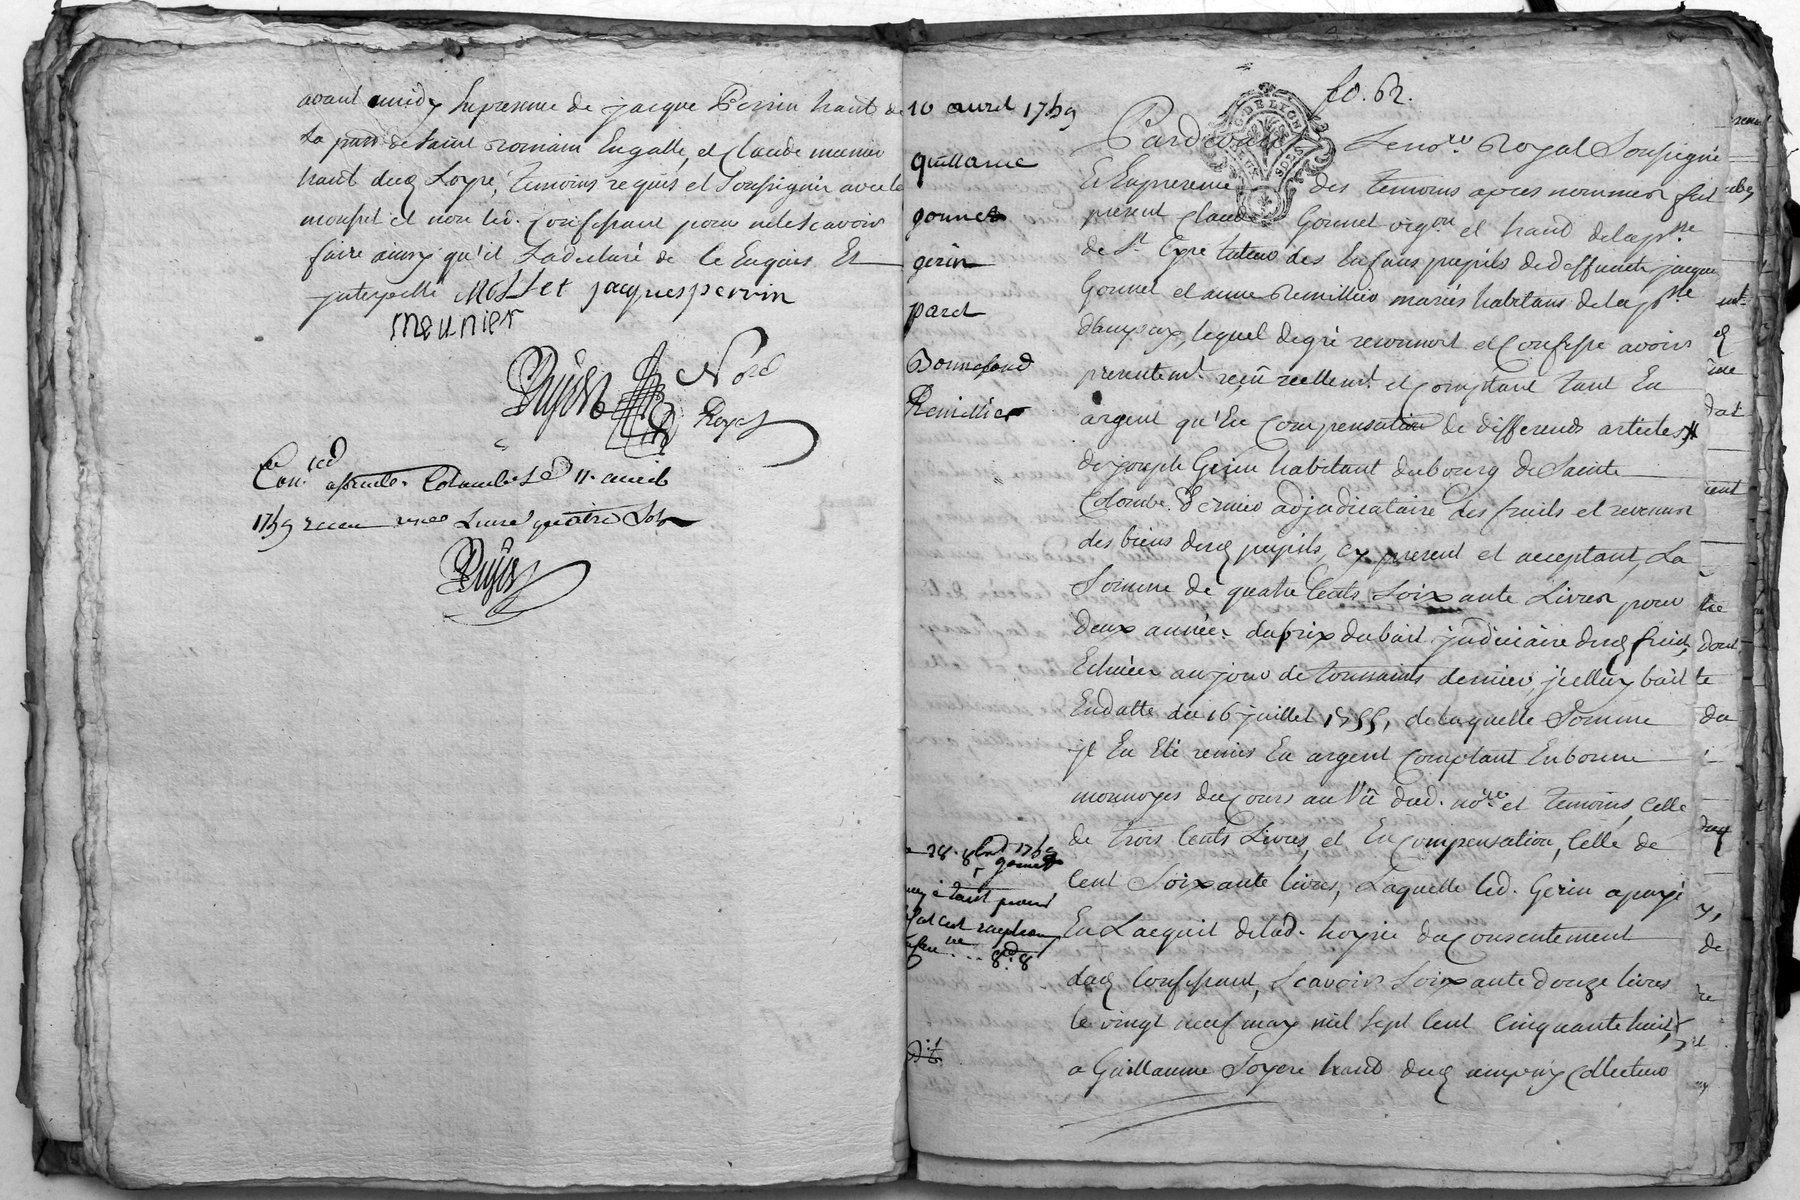 avant midy En presence de jacque Perrin hant de
la parr de Saint Romain Engalle, et Claude meunier
hant dud Loyre, temoins requis et Soussignés avec le
mousset et non led. Confessant pour ne le Scavoir
faire ainsy qu'il L'a declaré de ce Enquis Et
jnterpellé Mosset jacques perrin
meunier
Dujon Nore
Royal
Con. aste Colombe Le 11. avril
1759 receu une Livre quatre Sols
Dujon
fo. 62.
10 avril 1759
guillaume
gonnet
gerin
paret
Bonnefond
Remillier
GDE LYON
Pardevant Le nore Royal Soussigné
Et En presence des temoins apres nommés fut
present Claude Gonnet vigon et hant de la psse
de St Cyre tuteur des Enfans pupils de deffuncts jacque
Gonnet et anne Remillier mariés habitans de la psse
d'ampuy, lequel de gré reconnoit et Confesse avoir
presentemt reçû reellemt et Comptant tant En
argent qu'En Compensation de differends articles
de joseph Gerin habitant du bourg de Sainte
Colombe Fermier adjudicataire des fruits et revenus
des biens desd pupils, cy present et acceptant, La
Somme de quatre Cents Soixante Livres pour
deux années du prix du bail judiciaire desd fruits
Echüees au jour de toussaints dernier, jcelluy bail
En datte du 16 juillet 1755, de laquelle Somme
jl En Eté remis En argent Comptant En bonne
monnoyes du Cours au Vû dud. nore et temoins, Celle
de trois Cents Livres, et En Compensation, Celle de
Cent Soixante livres, Laquelle led. Gerin a payé
En L'acquit de lad. hoyrie du Consentement
dud Confessant, Scavoir Soixante douze livres
le vingt neuf may mil Sept Cent Cinquante huit,
a Guillaume Soyere hant dud ampuy Collecteur
28. 8bre 1759
gonnet